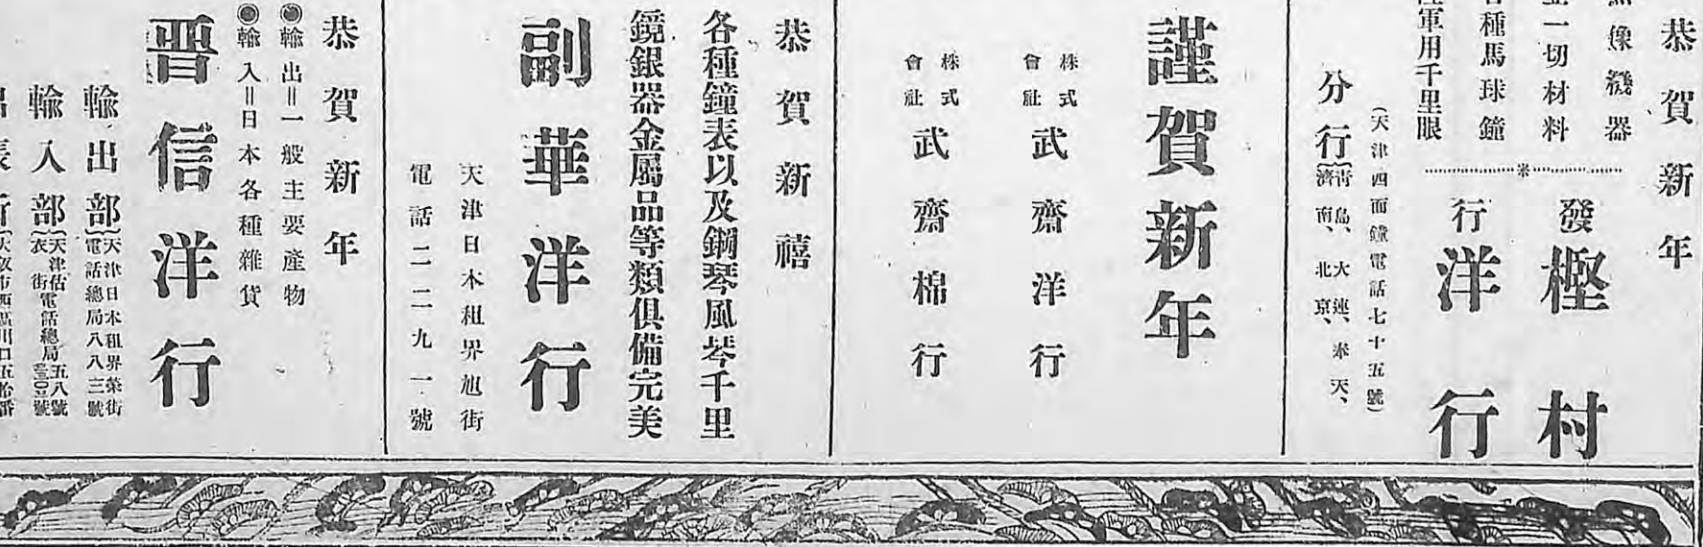 恭賀新年
像機器
一切材料
各種馬球鐘
軍用千里眼
發 樫村
行 洋行
(天津四面鐘電話七十五號)
分行
青島、大連、奉天、
濟南、北京、
謹賀新年
株式會社 武齋洋行
株式會社 武齋棉行
恭賀新禧
各種鐘表以及鋼琴風琴千里
鏡銀器金屬品等類俱備完美
副華洋行
天津日本租界旭街
電話二二九一號
恭賀新年
◉輸出=一般主要產物
◉輸入=日本各種雜貨
晋信洋行
輸出部
天津日本租界榮街
電話總局八八三號
輸入部
天津估
衣街電話總局五八號